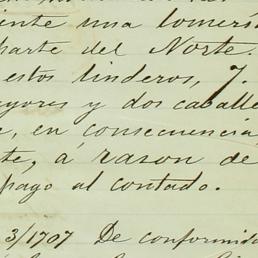 iente una lomería
parte del Norte.
estos linderos, 7.
ayores y dos caballe
en consecuencia,
te, á rason de
pago al contado.
3/1707 De conformida